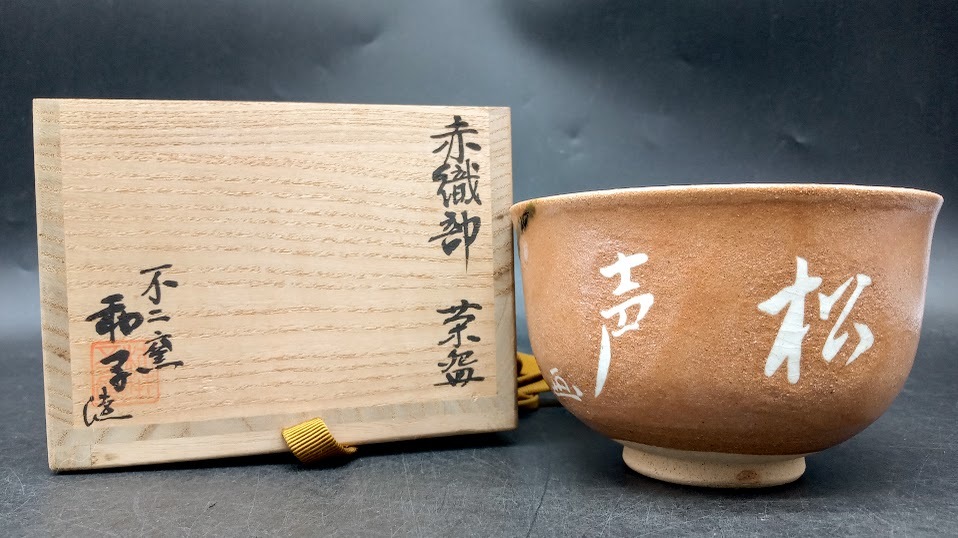 赤織部 茶盌
不二窯
和子造
松声